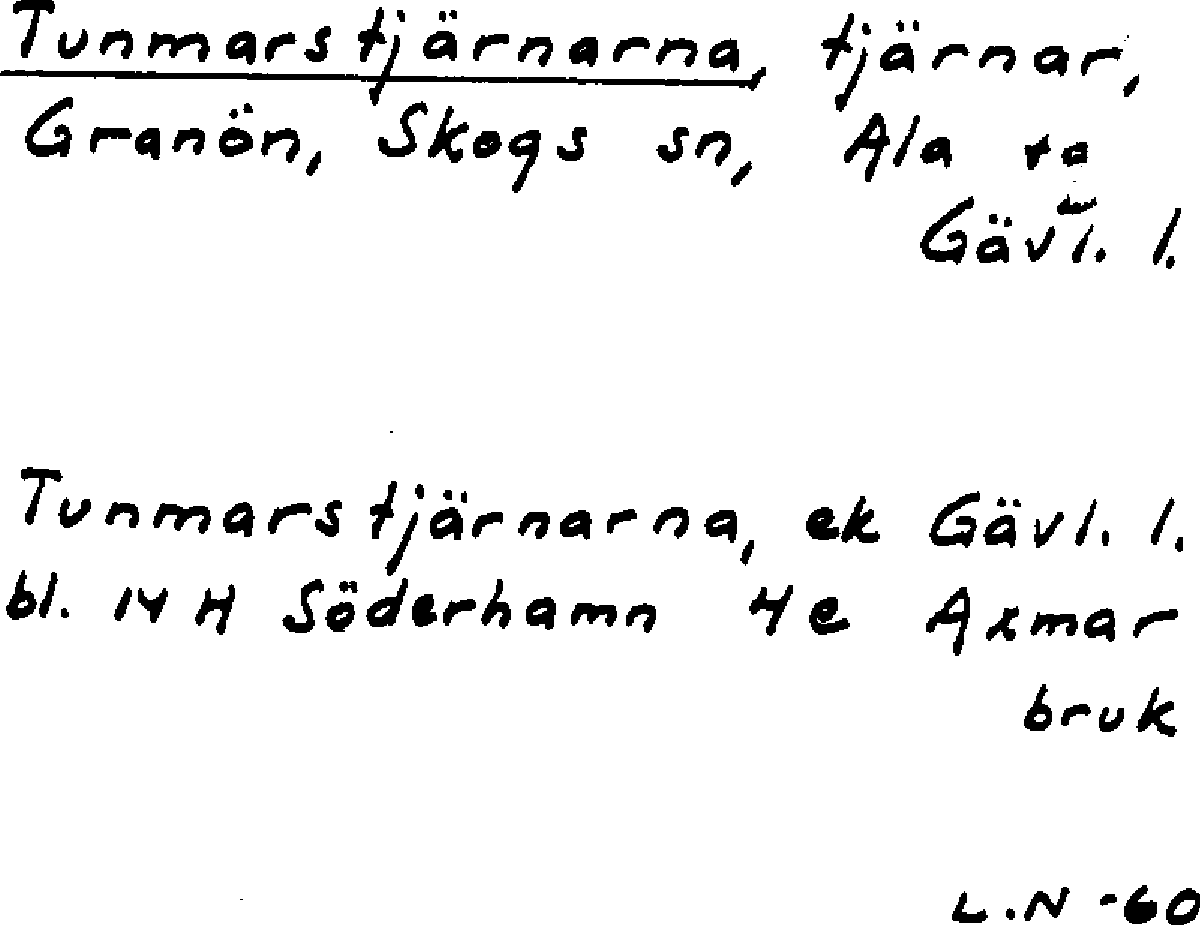 Tunmarstjärnarna, tjärnar,
Granön, Skogs sn, Ala ta
Gävl. l.
Tunmarstjärnarna, ek Gävl. l.
bl. 14 H Söderhamn 4 e Axmar
bruk
L.N -60